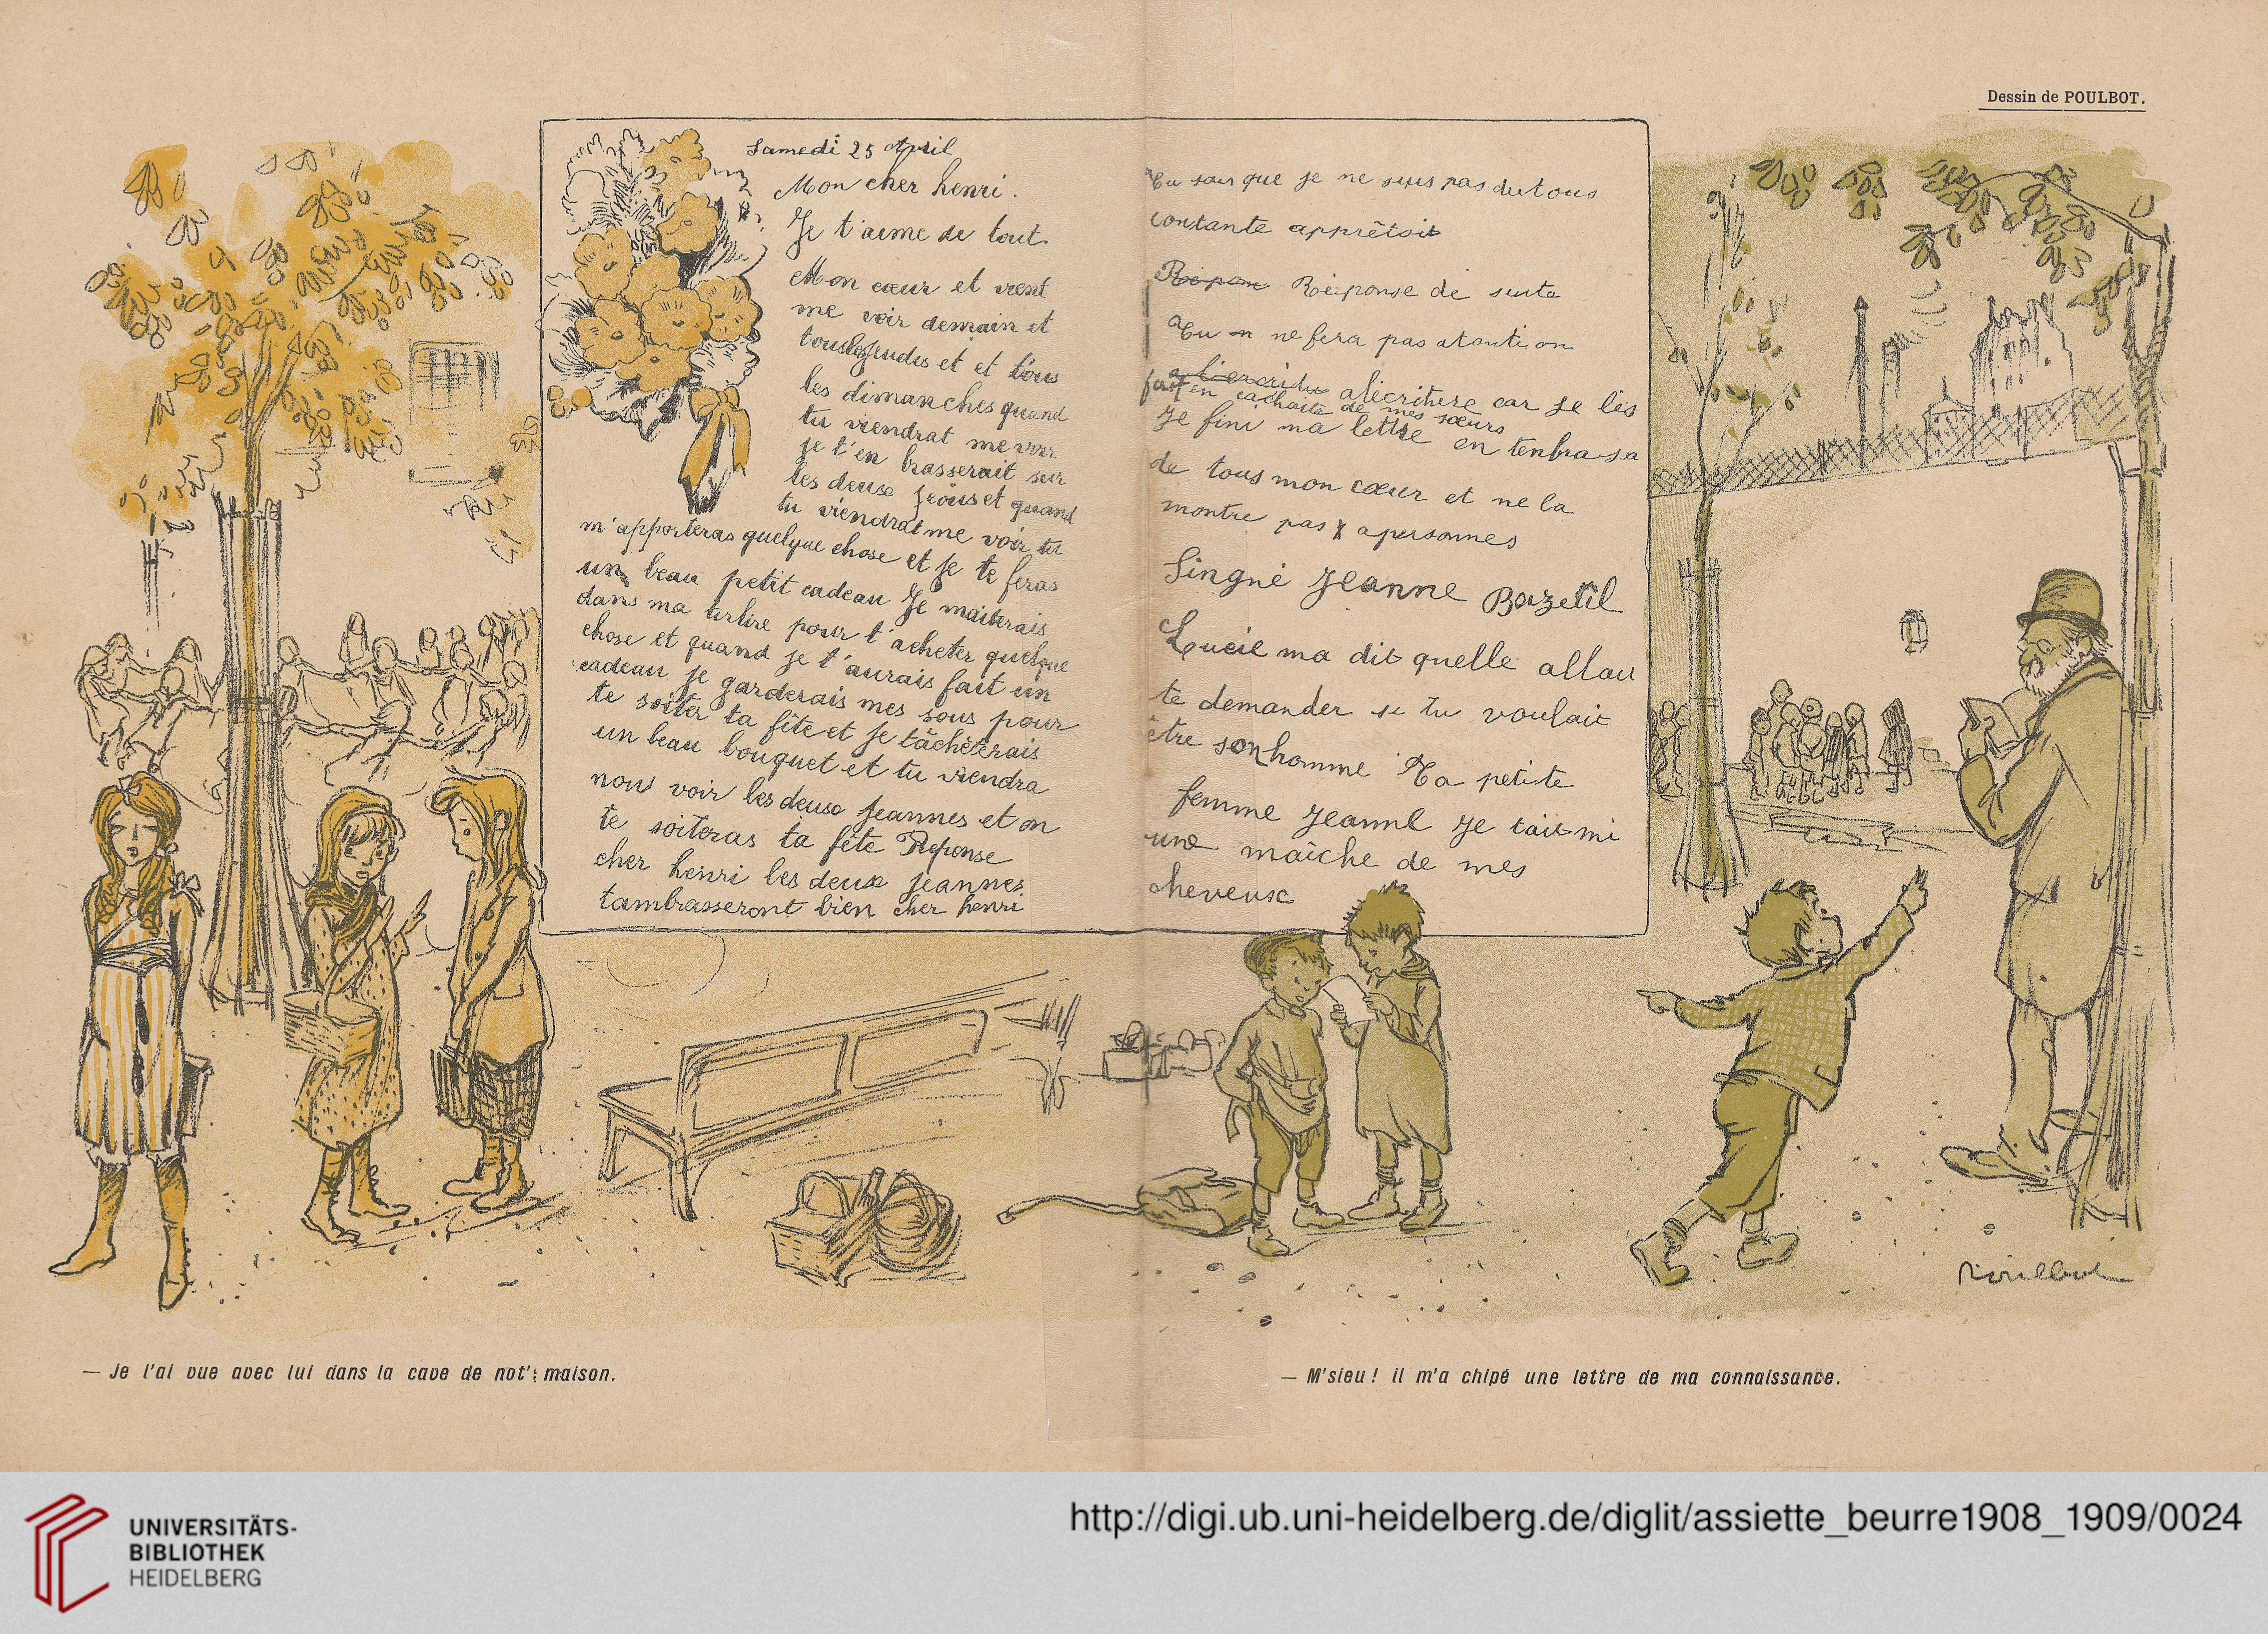 Dessin de POULBOT.
Samedi 25 April
Mon cher henri.
Je t'aime de tout
Mon cœur et vient
me voir demain et
touslesjeudis et et tous
les dimanches quand
tu viendrat me voir
je t'en brasserait sur
les deuse joûs et quand
tu viendrat me voir tu
m'apporteras quelque chose et je te feras
un beau petit cadeau Je maiterais
dans ma tirlire pour t'acheter quelque
chose et quand je t'aurais fait un
cadeau je garderais mes sous pour
te soiter ta fête et je tâchèterais
un beau bouquet et tu viendra
nous voir les deuse jeannes et on
te soiteras ta fête Reponse
cher henri les deuse jeannes
tambrasseront bien cher henri
Tu sais que je ne suis pas dutous
contante apprêtoit
Reponse de suite
Tu ne fera pas atantion
alécriture car je lés
fait en cachaite de mes sœurs
Je fini ma lettre en tenbrasa
de tous mon cœur et ne la
montre pas apersonnes
Singné Jeanne
Lucie ma dit quelle allai
te demander si tu voulait
être son homme Ta petite
femme Jeanne Je tait mi
une maîche de mes
cheveuse
Poulbot
— Je l'ai vue avec lui dans la cave de not' maison.
— M'sieu ! il m'a chipé une lettre de ma connaissance.
UNIVERSITÄTS-
BIBLIOTHEK
HEIDELBERG
http://digi.ub.uni-heidelberg.de/diglit/assiette_beurre1908_1909/0024